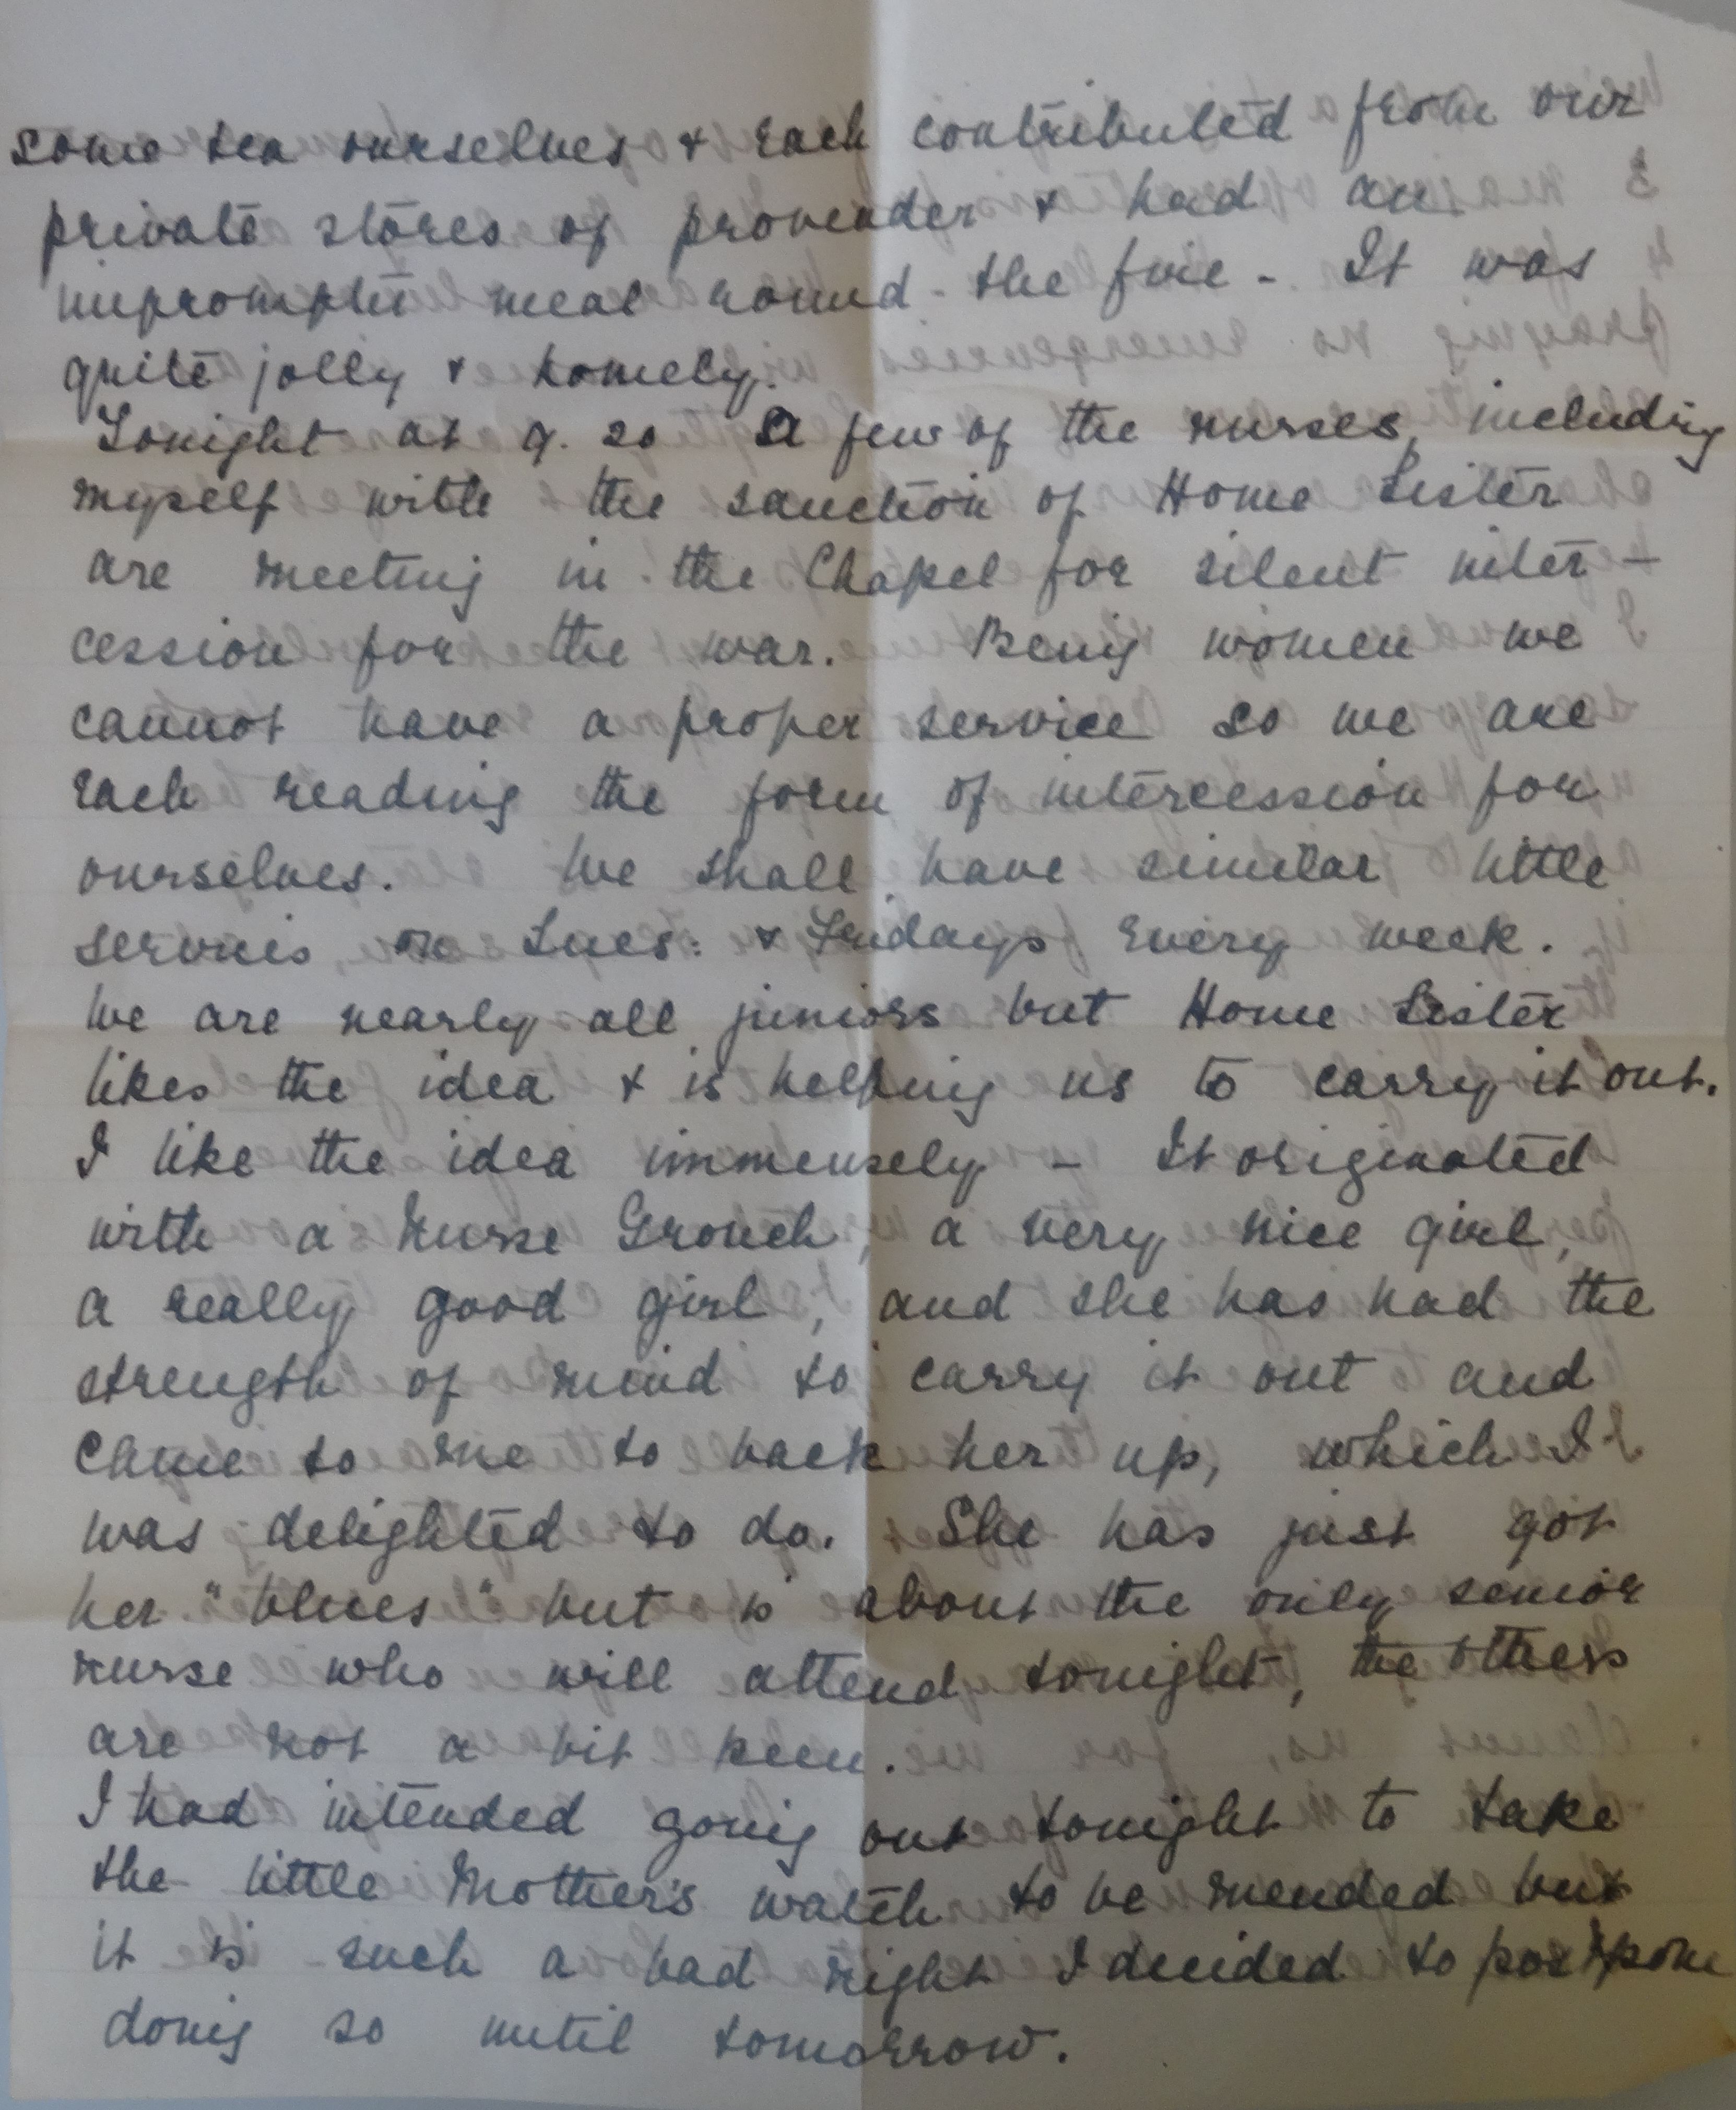 some tea ourselves & each contributed from our
private stores of provender & had an
impromptu meal round the fire - It was
quite jolly & homely.
Tonight at 9.20 a few of the nurses, including
myself with the sanction of Home Sister
are meeting in the Chapel for silent inter-
cession for the war. Being women we
cannot have a proper service so we are
each reading the form of intercession for
ourselves. We shall have similar little
services on Tues: & Fridays every week.
We are nearly all juniors but Home Sister
likes the idea & is helping us to carry it out.
I like the idea immensely - It originated
with a Nurse Grouch, a very nice girl,
a really good girl, and she has had the
strength of mind to carry it out and
came to me to back her up, which I
was delighted to do. She has just got
her "blues" but is about the only senior
nurse who will attend tonight, the others
are not a bit keen.
I had intended going out tonight to take
the little Mother's watch to be mended but
it is such a bad night I decided to postpone
doing so until tomorrow.